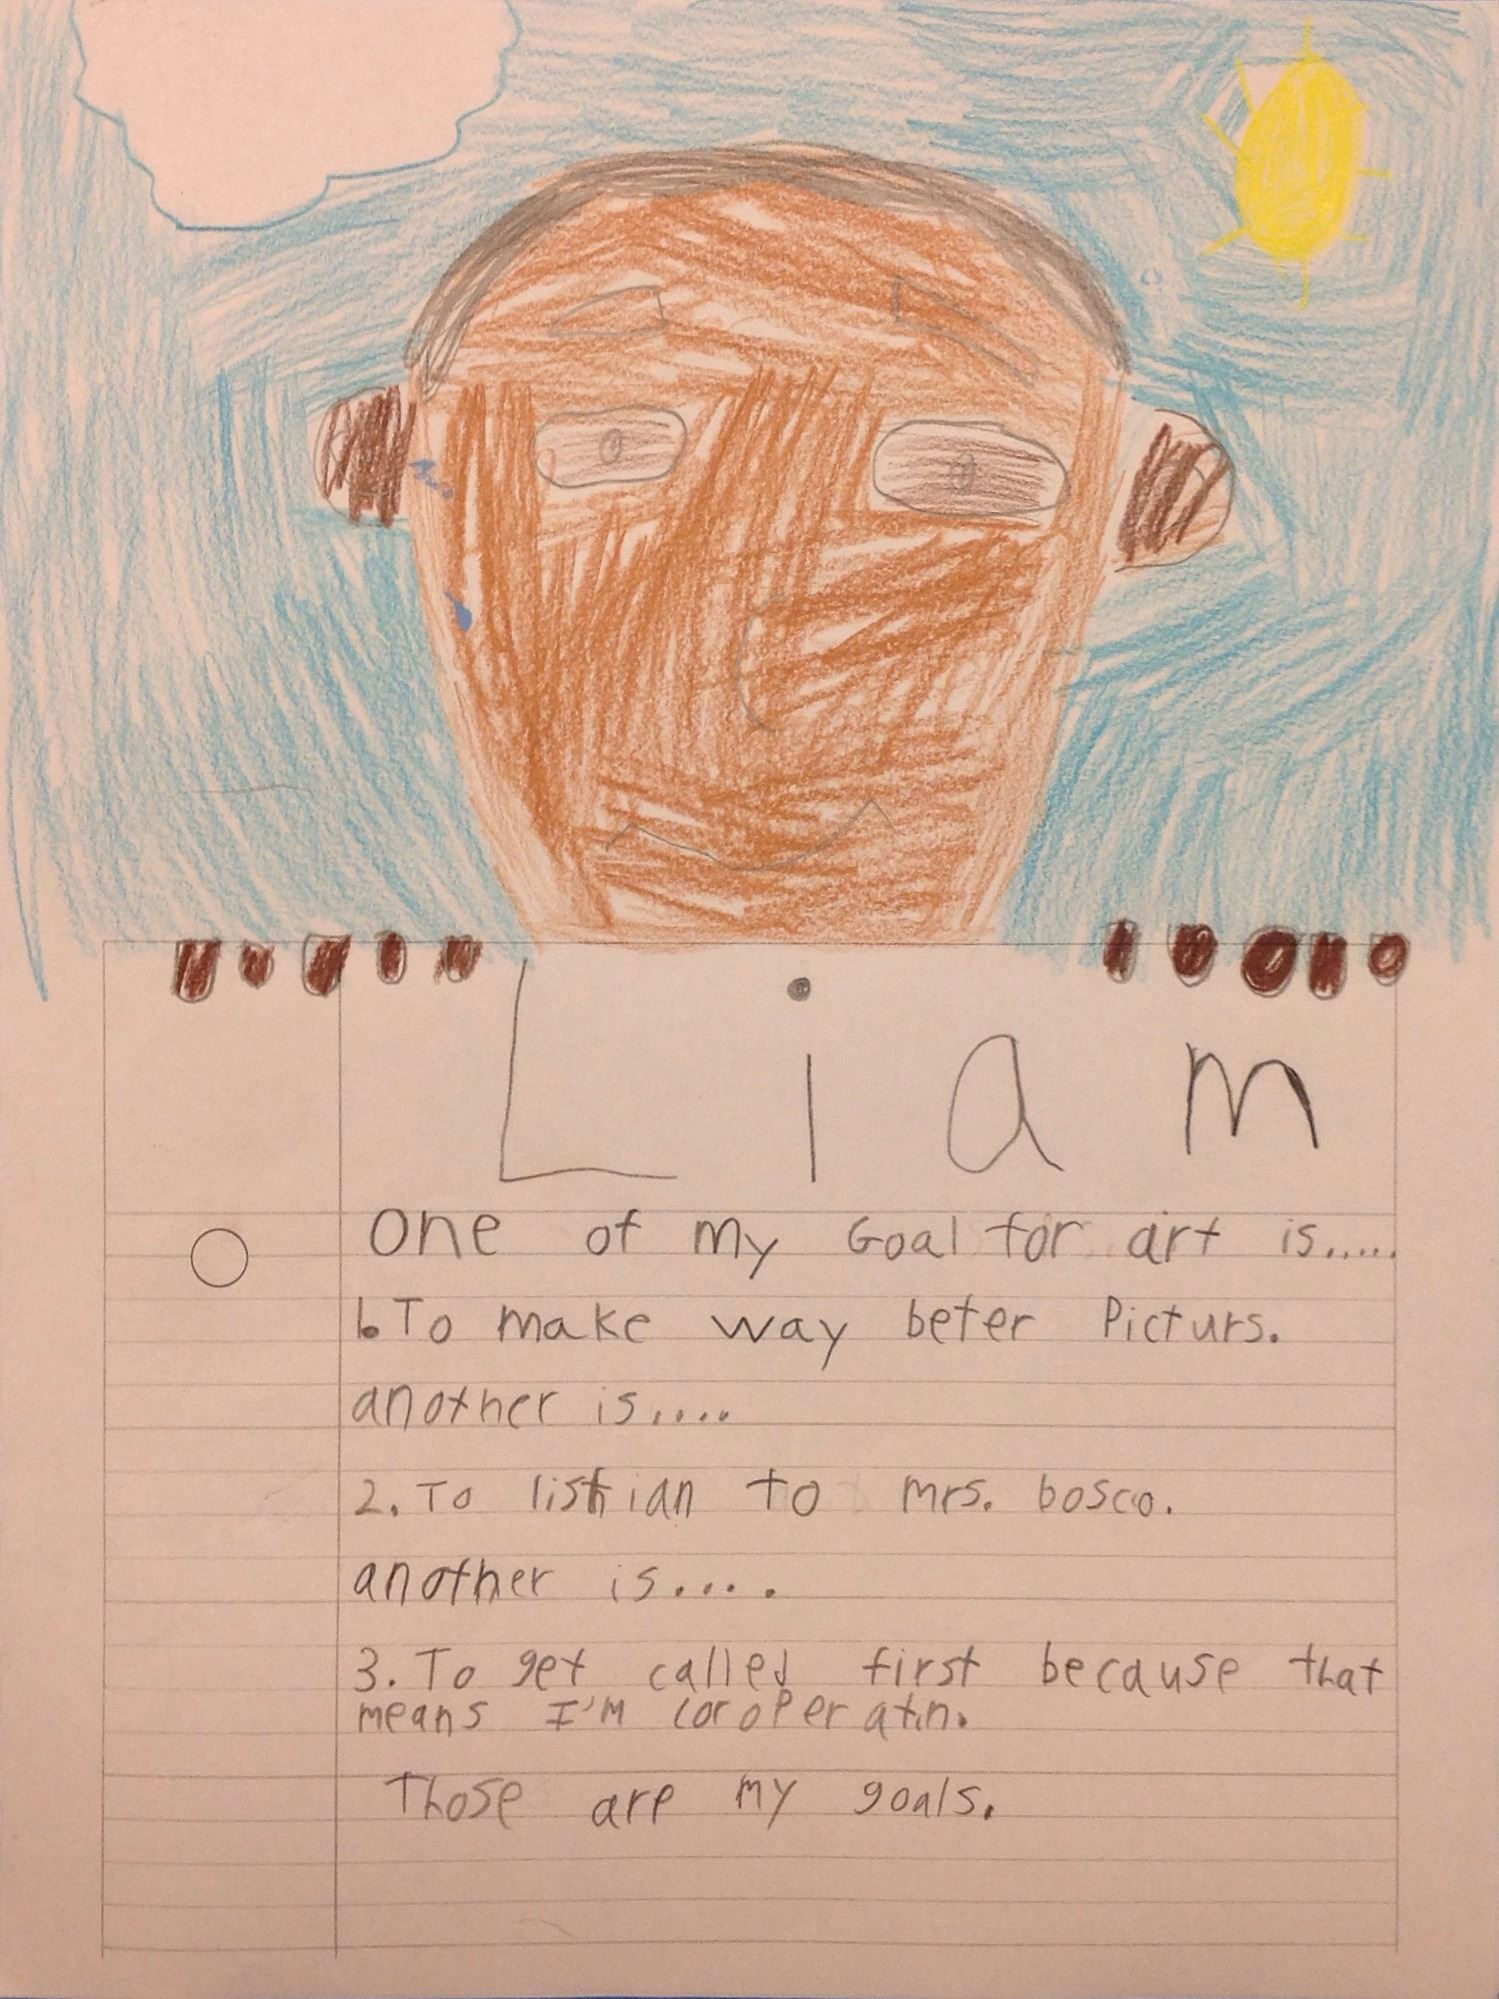 Liam
One of my Goal for art is.....
1. To make way beter Picturs.
another is....
2. To listian to mrs. bosco.
another is....
3. To get called first because that
means I'm coroperatin.
Those are my goals.